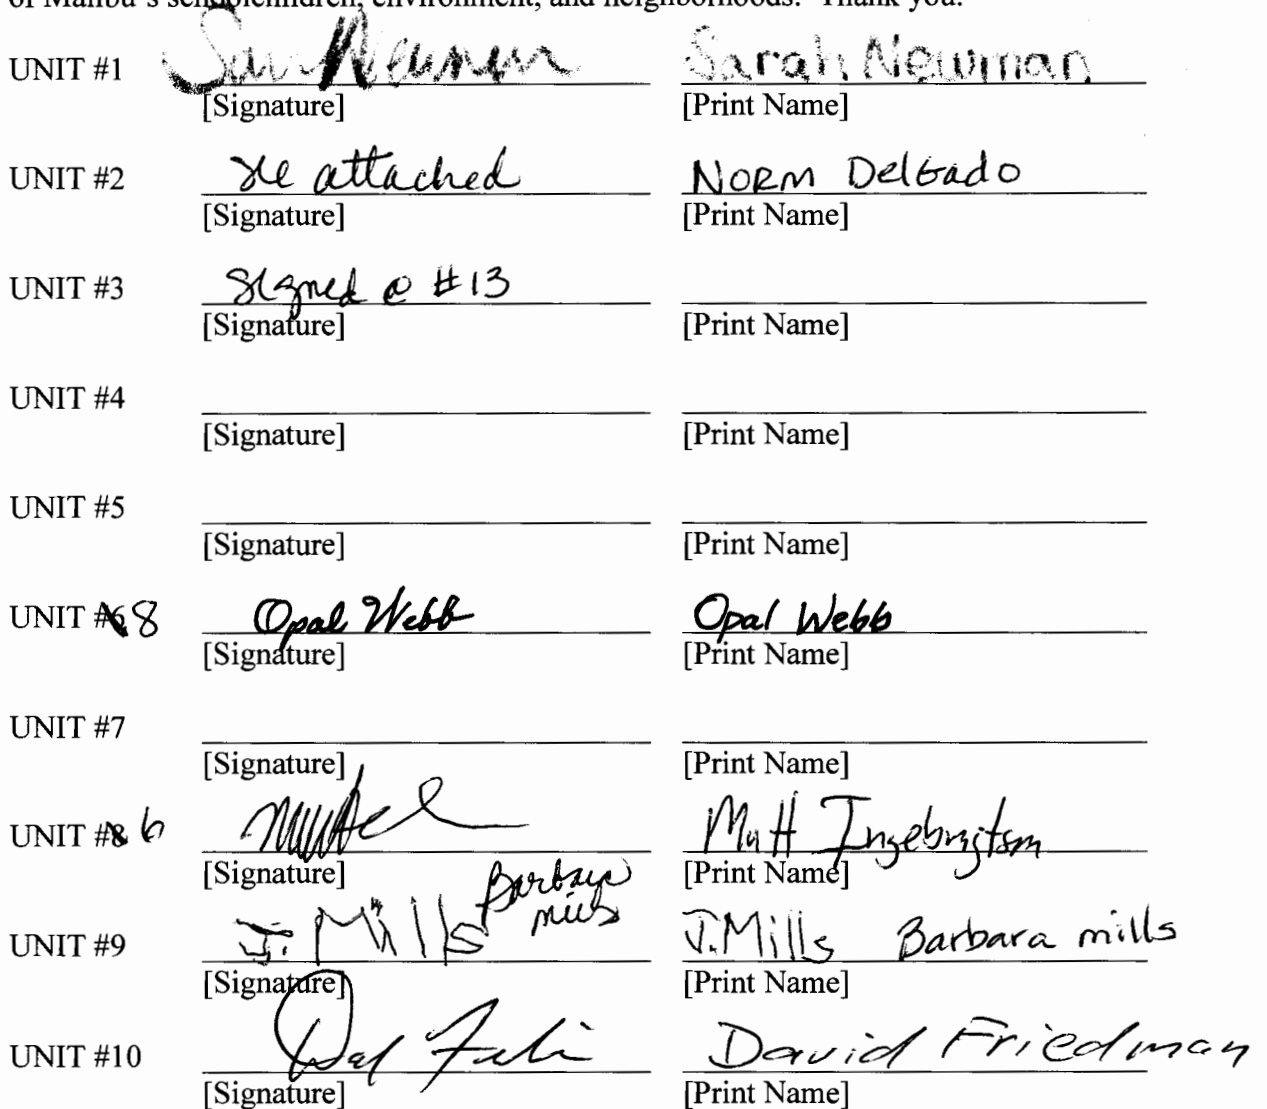 of Malibu's schoolchildren, environment, and neighborhoods. Thank you.
UNIT #1 Sarah Newman
[Signature] [Print Name]
UNIT #2 see attached Norm Delgado
[Signature] [Print Name]
UNIT #3 Signed @ #13
[Signature] [Print Name]
UNIT #4
[Signature] [Print Name]
UNIT #5
[Signature] [Print Name]
UNIT #6 8 Opal Webb Opal Webb
[Signature] [Print Name]
UNIT #7
[Signature] [Print Name]
UNIT #8 6 Matt Ingebrigtsen
[Signature] [Print Name]
UNIT #9 J. Mills Barbara Mills J. Mills Barbara mills
[Signature] [Print Name]
UNIT #10 David Friedman
[Signature] [Print Name]